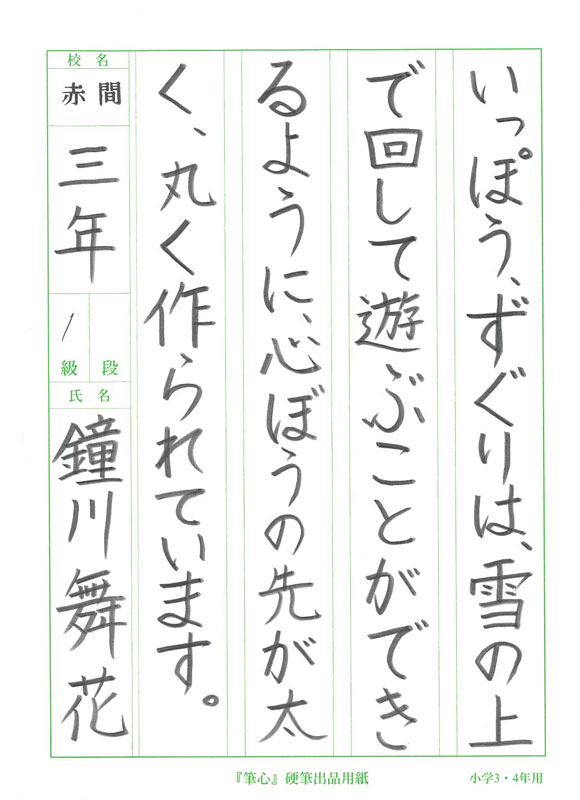 いっぽう、ずぐりは、雪の上
で回して遊ぶことができ
るように、心ぼうの先が太
く、丸く作られています。
校名
赤間
三年
1
級 段
氏名
鐘川舞花
『筆心』硬筆出品用紙
小学3・4年用